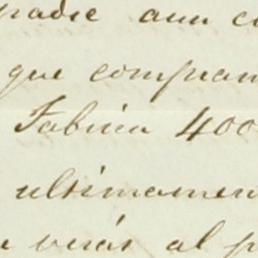 padre aun c
que compran
Fabrica 400
ultimamen
verás al p